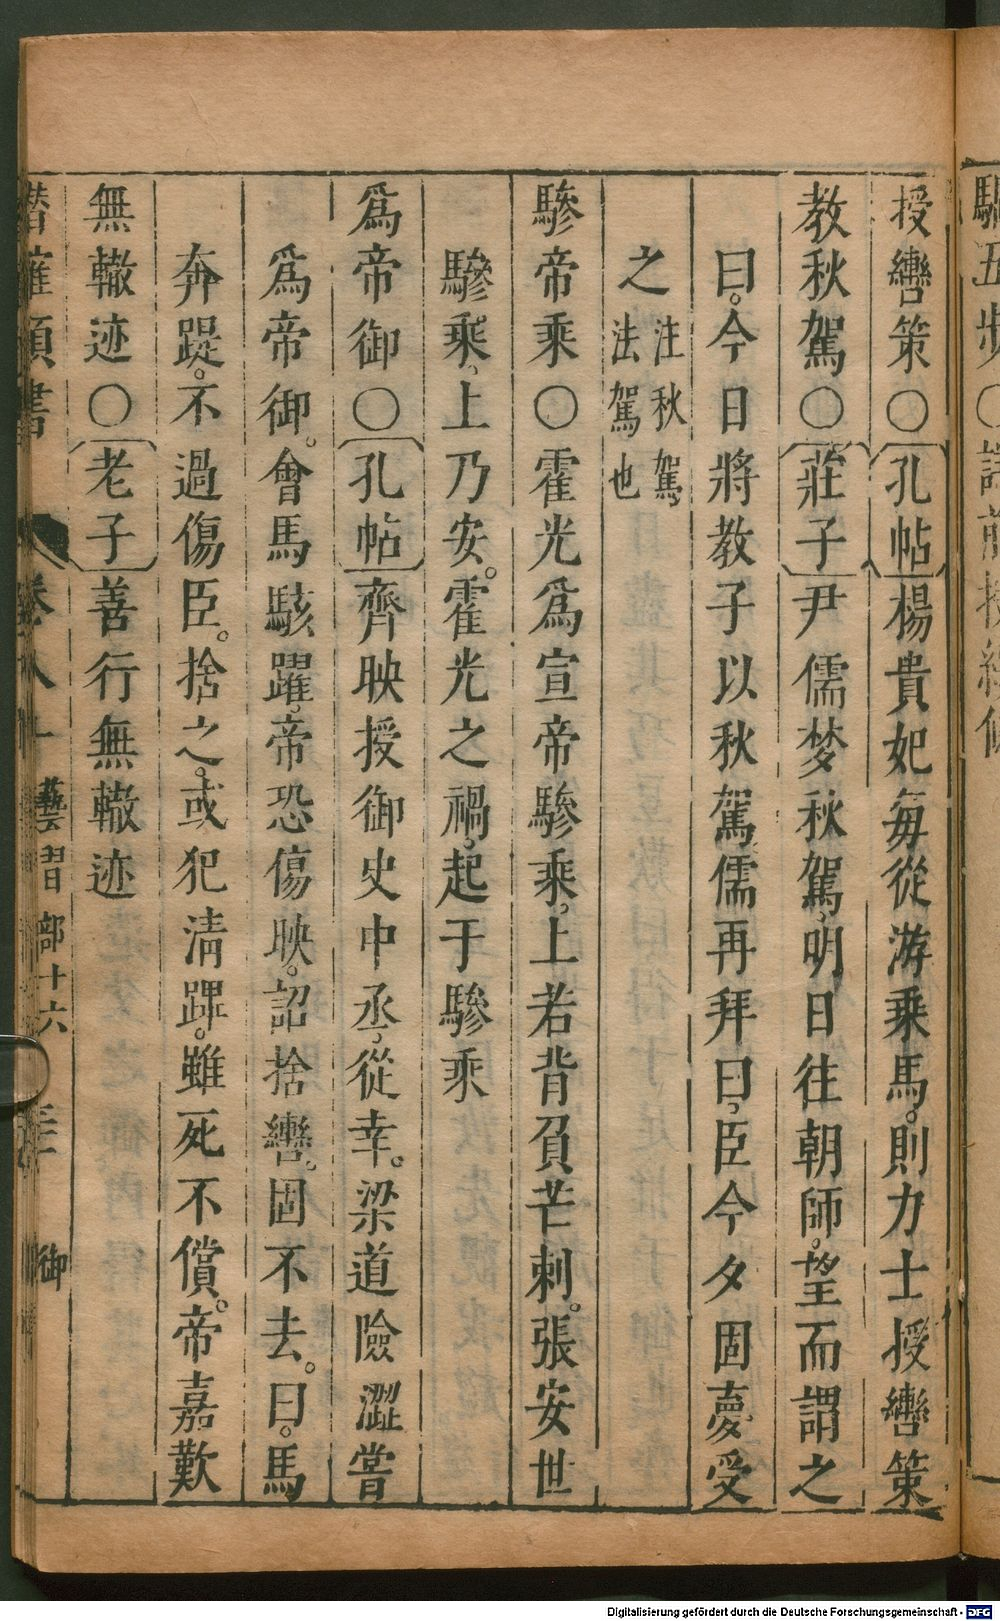 授轡策○〔孔帖〕楊貴妃每從游乘馬則力士授轡策
教秋駕○〔莊子〕尹儒梦秋駕明日往朝師望而謂之
曰今日將教子以秋駕儒再拜曰臣今夕固夢受
之注秋駕法駕也
驂帝乘○霍光爲宣帝驂乘上若背負芒刺張安世
驂乘上乃安霍光之禍起于驂乘
爲帝御○〔孔帖〕齊映授御史中丞從幸梁道險澀嘗
爲帝御會馬駭躍帝恐傷映詔捨轡固不去曰馬
奔踶不過傷臣捨之或犯清蹕雖死不償帝嘉歎
無轍迹○〔老子〕善行無轍迹
潛確類書 卷八十 藝習部十六 御
Digitalisierung gefördert durch die Deutsche Forschungsgemeinschaft - DFG